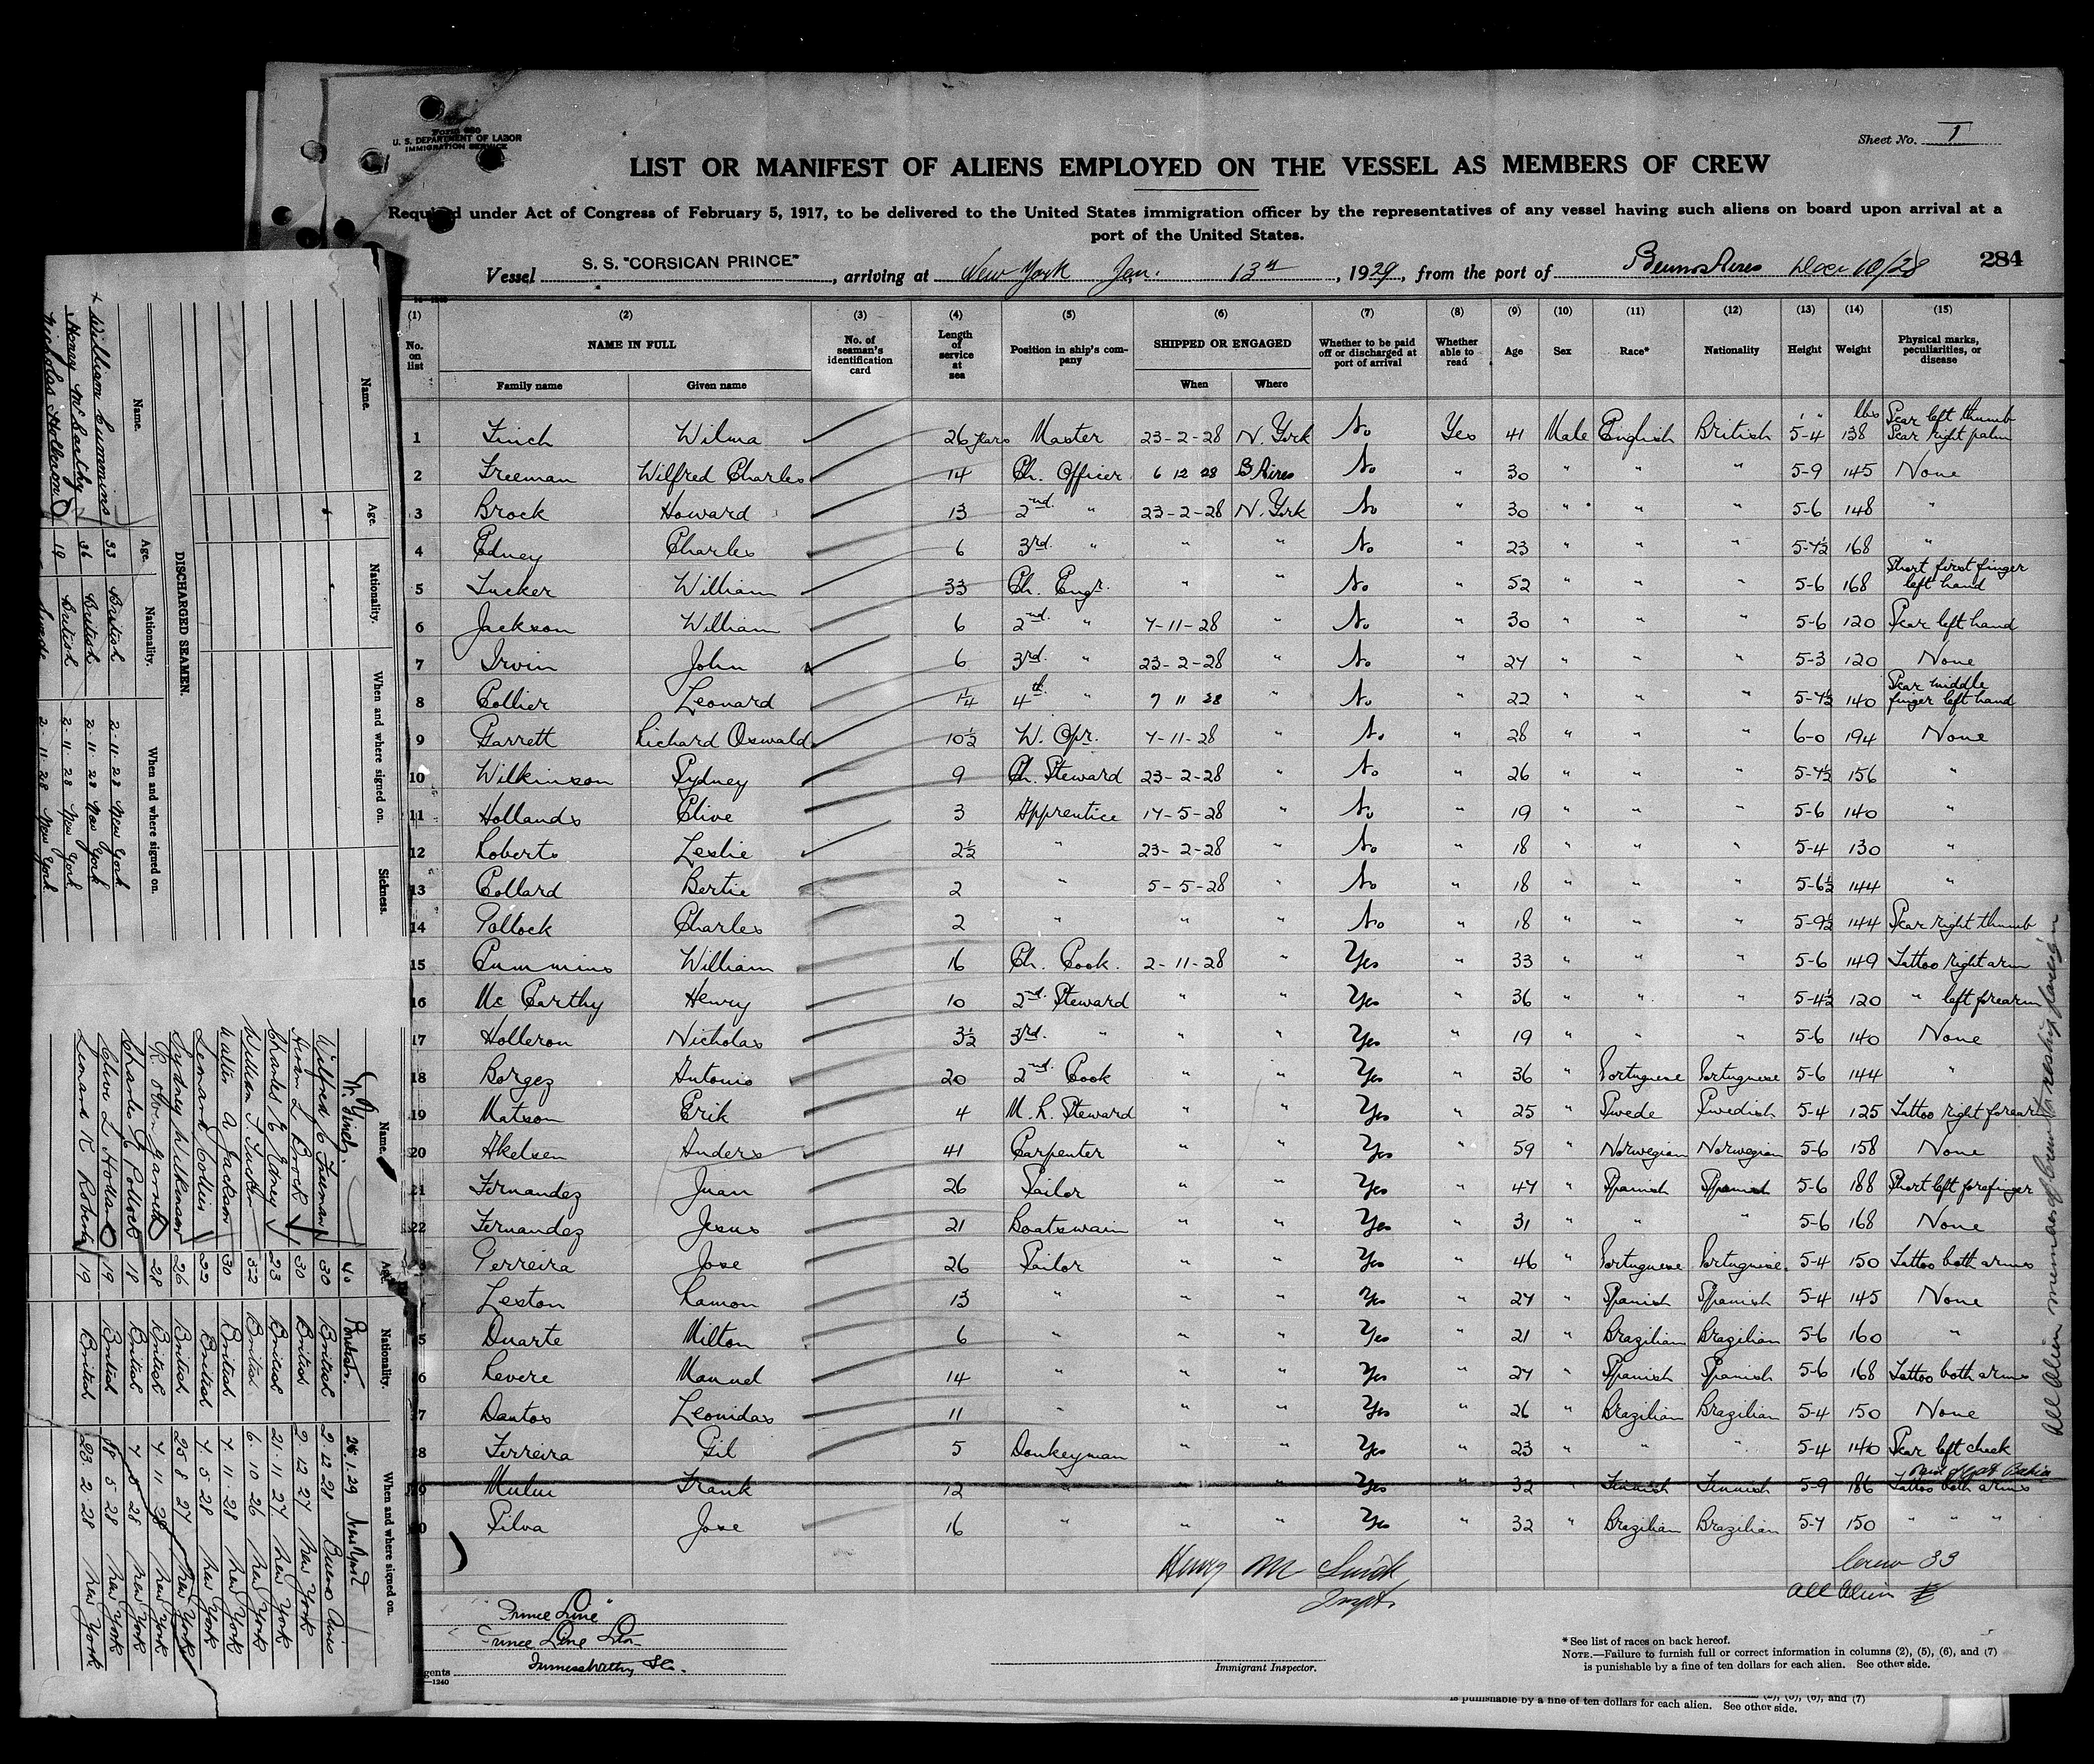 Form 680
U. S. DEPARTMENT OF LABOR
IMMIGRATION SERVICE
Sheet No. 1
LIST OR MANIFEST OF ALIENS EMPLOYED ON THE VESSEL AS MEMBERS OF CREW
Required under Act of Congress of February 5, 1917, to be delivered to the United States immigration officer by the representatives of any vessel having such aliens on board upon arrival at a
port of the United States.
Vessel S. S. "CORSICAN PRINCE", arriving at New York Jan. 13th, 1929, from the port of Buenos Aires Dec 10/28 284
(1) (2) (3) (4) (5) (6) (7) (8) (9) (10) (11) (12) (13) (14) (15)
No. on list NAME IN FULL No. of seaman's identification card Length of service at sea Position in ship's company SHIPPED OR ENGAGED Whether to be paid off or discharged at port of arrival Whether able to read Age Sex Race* Nationality Height Weight Physical marks, peculiarities, or disease
Family name Given name When Where
1 Finch Wilma 26 years Master 23-2-28 N. York No Yes 41 Male English British 5-4 138 lbs Scar left thumb Scar right palm
2 Freeman Wilfred Charles 14 Ch. Officer 6 12 28 B Aires No " 30 " " " 5-9 145 None
3 Brock Howard 13 2nd " 23-2-28 N. York No " 30 " " " 5-6 148 "
4 Edney Charles 6 3rd. " " " No " 23 " " " 5-7½ 168 "
5 Tucker William 33 Ch. Engr. " " No " 52 " " " 5-6 168 Short first finger left hand
6 Jackson William 6 2nd. " 7-11-28 " No " 30 " " " 5-6 120 Scar left hand
7 Irvin John 6 3rd. " 23-2-28 " No " 27 " " " 5-3 120 None
8 Collier Leonard 1¼ 4th. " 7 11 28 " No " 22 " " " 5-7½ 140 Scar middle finger left hand
9 Garrett Richard Oswald 10½ W. Opr. 7-11-28 " No " 28 " " " 6-0 194 None
10 Wilkinson Sydney 9 Ch. Steward 23-2-28 " No " 26 " " " 5-7½ 156 "
11 Hollands Clive 3 Apprentice 17-5-28 " No " 19 " " " 5-6 140 "
12 Roberts Leslie 2½ " 23-2-28 " No " 18 " " " 5-4 130 "
13 Collard Bertie 2 " 5-5-28 " No " 18 " " " 5-6½ 144 "
14 Pollock Charles 2 " " " No " 18 " " " 5-9½ 144 Scar right thumb
15 Cummins William 16 Ch. Cook. 2-11-28 " Yes " 33 " " " 5-6 149 Tattoo right arm
16 Mc Carthy Henry 10 2nd. Steward " " Yes " 36 " " " 5-4½ 120 " left forearm
17 Holleron Nicholas 3½ 3rd. " " " Yes " 19 " " " 5-6 140 None
18 Borgez Antonio 20 2nd Cook " " Yes " 36 " Portuguese Portuguese 5-6 144 "
19 Matson Erik 4 M. R. Steward " " Yes " 25 " Swede Swedish 5-4 125 Tattoo right forearm
20 Akelsen Anders 41 Carpenter " " Yes " 59 " Norwegian Norwegian 5-6 158 None
21 Fernandez Juan 26 Sailor " " Yes " 47 " Spanish Spanish 5-6 188 Short left forefinger
22 Fernandez Jesus 21 Boatswain " " Yes " 31 " " " 5-6 168 None
Perreira Jose 26 Sailor " " Yes " 46 " Portuguese Portuguese 5-4 150 Tattoo both arms
Leston Ramon 13 " " " Yes " 27 " Spanish Spanish 5-4 145 None
Duarte Milton 6 " " " Yes " 21 " Brazilian Brazilian 5-6 160 "
Revere Manuel 14 " " " Yes " 27 " Spanish Spanish 5-6 168 Tattoo both arms
Dantos Leonidas 11 " " " Yes " 26 " Brazilian Brazilian 5-4 150 None
Ferreira Gil 5 Donkeyman " " Yes " 23 " " " 5-4 140 Scar left cheek
Frank 12 " " " Yes " 32 " Finnish Finnish 5-9 186 Tattoo both arms
Silva Jose 16 " " " Yes " 32 " Brazilian Brazilian 5-7 150 " " "
Henry M Smith
Inspt.
Crew 33
All Alien
"Prince Line"
Prince Line Ltd
Furness Withy & Co.
gents
—1240
Immigrant Inspector.
*See list of races on back hereof.
NOTE.—Failure to furnish full or correct information in columns (2), (5), (6), and (7)
is punishable by a fine of ten dollars for each alien. See other side.
is punishable by a fine of ten dollars for each alien. See other side.
All Alien members of Crew
Name. Age. Nationality. When and where signed on. Sickness.
DISCHARGED SEAMEN.
Name. Age. Nationality. When and where signed on.
William Cummins 33 British 2. 11. 28 New York
Henry McCarthy 36 British 2. 11. 28 New York
Nicholas Holleron 19 British 2. 11. 28 New York
Swede 2. 11. 28 New York
Name. Age. Nationality. When and where signed on.
W. Finch. 40 26.1.29
Wilfred C Freeman 30 British 2. 12 28 Buenos Aires
Hiram L Brock 30 British 2. 12 27 New York
Charles E Edney 23 British 21. 11 27 New York
William T. Tucker 52 British 6. 10 26 New York
Wallis A Jackson 30 British 7. 11. 28 New York
Leonard Collier 22 British 7. 5. 28 New York
Sydney Wilkinson 26 British 25 8 27 New York
R. Owen Garrett 28 British 7. 11. 28 New York
Charles G Pollock 18 British 7 5 28 New York
Clive L. Holland 19 British 18 5 28 New York
Leonard R Roberts 19 British 23. 2. 28 New York